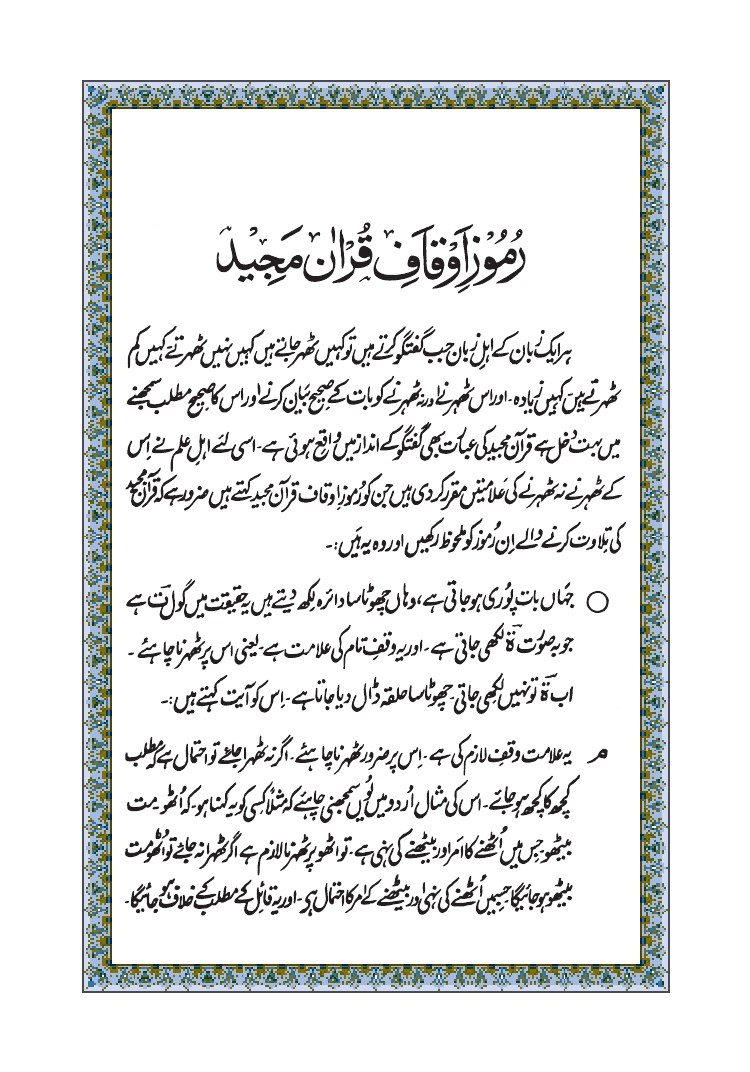 رُمُوْزِ اَوْقَافِ قُرْاٰن مَجِیْد
ہر ایک زبان کے اہلِ زبان جب گفتگو کرتے ہیں تو کہیں ٹھہر جاتے ہیں کہیں نہیں ٹھہرتے۔ کہیں کم
ٹھہرتے ہیں کہیں زیادہ۔ اور اس ٹھہرنے اور نہ ٹھہرنے کو بات کے صحیح بیان کرنے اور اس کا صحیح مطلب سمجھنے
میں بہت دخل ہے قرآن مجید کی عبارت بھی گفتگو کے انداز میں واقع ہوئی ہے۔ اسی لئے اہلِ علم نے اِس
کے ٹھہرنے نہ ٹھہرنے کی علامتیں مقرر کر دی ہیں جن کو رُموزِ اوقاف قرآن مجید کہتے ہیں ضرور ہے کہ قرآن مجید
کی تِلاوت کرنے والے اِن رُموز کو ملحوظ رکھیں اور وہ یہ ہیں:۔
○ جہاں بات پُوری ہو جاتی ہے، وہاں چھوٹا سا دائرہ لِکھ دیتے ہیں یہ حقیقت میں گول ت ہے
جو بہ صُورت ۃ لکھی جاتی ہے۔ اور یہ وقفِ تام کی علامت ہے۔ یعنی اس پر ٹھہرنا چاہئے۔
اب ۃ تو نہیں لکھی جاتی۔ چھوٹا سا حلقہ ڈال دیا جاتا ہے۔ اِس کو آیت کہتے ہیں:۔
مـ یہ علامت وقفِ لازم کی ہے۔ اِس پر ضرور ٹھہرنا چاہئے۔ اگر نہ ٹھہرا جائے تو احتمال ہے کہ مطلب
کچھ کا کچھ ہو جائے۔ اس کی مثال اُردو میں یُوں سمجھنی چاہئے کہ مثلاً کسی کو یہ کہنا ہو۔ کہ اُٹھو۔ مت
بیٹھو۔ جس میں اُٹھنے کا امر اور بیٹھنے کی نہی ہے۔ تو اٹھو پر ٹھہرنا لازم ہے اگر ٹھہرا نہ جائے تو اُٹھو مت
بیٹھو ہو جائیگا جسمیں اُٹھنے کی نہی اور بیٹھنے کے امر کا احتمال ہے۔ اور یہ قائل کے مطلب کے خلاف ہو جائیگا۔